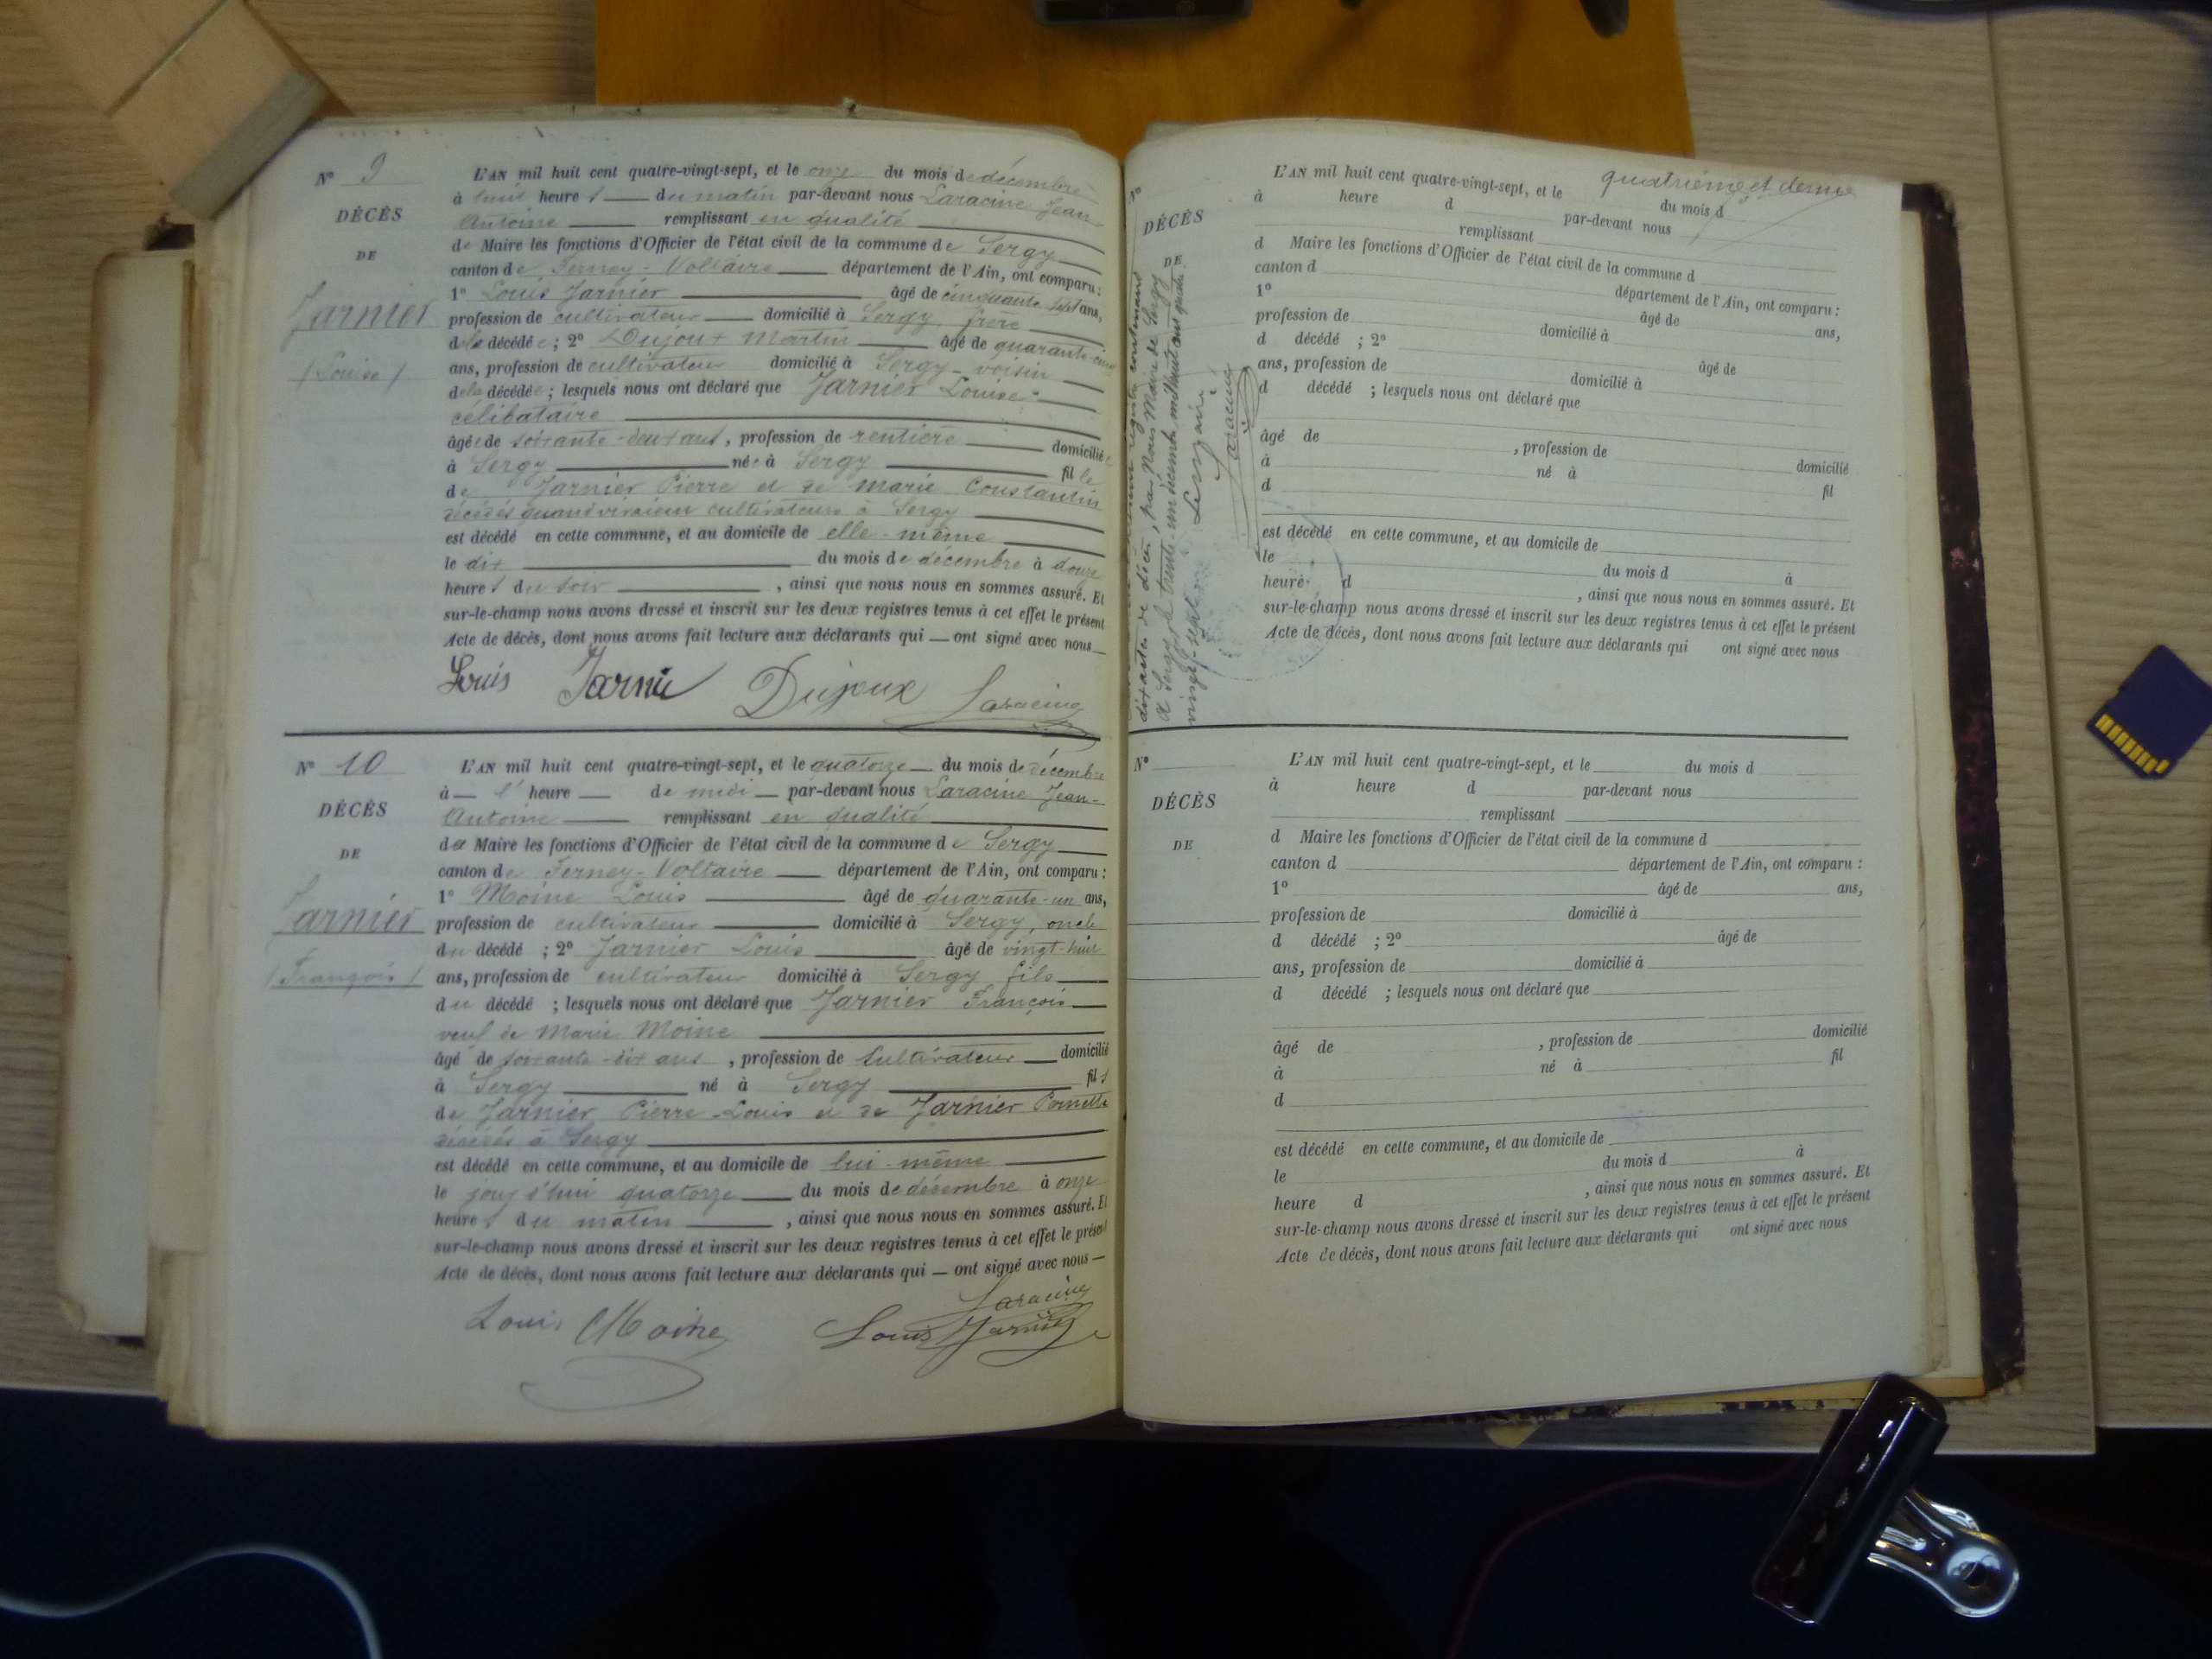 N° 9
DÉCÈS
DE
Jarnier
(Louise)
L'AN mil huit cent quatre-vingt-sept, et le onze du mois de décembre
à huit heures du matin par-devant nous Laracine Jean
Antoine remplissant en qualité
de Maire les fonctions d'Officier de l'état civil de la commune de Sergy
canton de Ferney-Voltaire département de l'Ain, ont comparu :
1° Louis Jarnier âgé de cinquante-sept ans,
profession de cultivateur domicilié à Sergy, frère
de la décédée ; 2° Dujoux Martin âgé de quarante-cinq
ans, profession de cultivateur domicilié à Sergy - voisin
de la décédée ; lesquels nous ont déclaré que Jarnier Louise
célibataire
âgée de soixante-deux ans, profession de rentière domiciliée
à Sergy née à Sergy fille
de Jarnier Pierre et de Marie Constantin
décédés quand vivaient cultivateurs à Sergy
est décédé en cette commune, et au domicile de elle-même
le dix du mois de décembre à douze
heures du soir, ainsi que nous nous en sommes assuré. Et
sur-le-champ nous avons dressé et inscrit sur les deux registres tenus à cet effet le présent
Acte de décès, dont nous avons fait lecture aux déclarants qui — ont signé avec nous
Louis Jarnie Dujoux Laracine
N° 10
DÉCÈS
DE
Jarnier
(François)
L'AN mil huit cent quatre-vingt-sept, et le quatorze du mois de décembre
à l' heure de midi par-devant nous Laracine Jean-
Antoine remplissant en qualité
de Maire les fonctions d'Officier de l'état civil de la commune de Sergy
canton de Ferney-Voltaire département de l'Ain, ont comparu :
1° Moine Louis âgé de quarante-un ans,
profession de cultivateur domicilié à Sergy, oncle
du décédé ; 2° Jarnier Louis âgé de vingt-huit
ans, profession de cultivateur domicilié à Sergy fils
du décédé ; lesquels nous ont déclaré que Jarnier François
veuf de Marie Moine
âgé de soixante-dix ans, profession de Cultivateur domicilié
à Sergy né à Sergy fils
de Jarnier Pierre-Louis et de Jarnier Pernette
décédés à Sergy
est décédé en cette commune, et au domicile de lui-même
le jourd'hui quatorze du mois de décembre à onze
heures du matin, ainsi que nous nous en sommes assuré. Et
sur-le-champ nous avons dressé et inscrit sur les deux registres tenus à cet effet le présent
Acte de décès, dont nous avons fait lecture aux déclarants qui — ont signé avec nous —
Laracine
Louis Moine Louis Jarnier
quatrième et dernier
N°
DÉCÈS
DE
registre contenant
dix actes de décès, par Nous Maire de Sergy
à Sergy le trente-un décembre mil huit cent quatre
vingt-sept Le Maire
Laracine
L'AN mil huit cent quatre-vingt-sept, et le du mois d
à heure d par-devant nous
remplissant
d Maire les fonctions d'Officier de l'état civil de la commune d
canton d département de l'Ain, ont comparu :
1° âgé de ans,
profession de domicilié à
d décédé ; 2° âgé de
ans, profession de domicilié à
d décédé ; lesquels nous ont déclaré que
âgé de , profession de domicilié
à né à fil
d
est décédé en cette commune, et au domicile de
le du mois d à
heure d , ainsi que nous nous en sommes assuré. Et
sur-le-champ nous avons dressé et inscrit sur les deux registres tenus à cet effet le présent
Acte de décès, dont nous avons fait lecture aux déclarants qui ont signé avec nous
N°
DÉCÈS
DE
L'AN mil huit cent quatre-vingt-sept, et le du mois d
à heure d par-devant nous
remplissant
d Maire les fonctions d'Officier de l'état civil de la commune d
canton d département de l'Ain, ont comparu :
1° âgé de ans,
profession de domicilié à
d décédé ; 2° âgé de
ans, profession de domicilié à
d décédé ; lesquels nous ont déclaré que
âgé de , profession de domicilié
à né à fil
d
est décédé en cette commune, et au domicile de
le du mois d à
heure d , ainsi que nous nous en sommes assuré. Et
sur-le-champ nous avons dressé et inscrit sur les deux registres tenus à cet effet le présent
Acte de décès, dont nous avons fait lecture aux déclarants qui ont signé avec nous